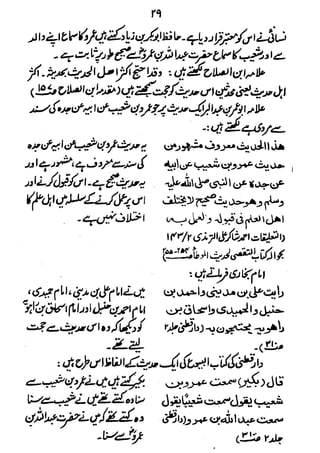 ۲۹
نسائی نے اس کو معتبر قرار دیا ہے۔ حافظ ابوبکر بن زیاد کہتے ہیں عمرو کا سماع اپنے والد
سے اور شعیب کا سماع حضرت عبداللہ بن عمرو سے صحیح طور پر ثابت ہے۔
علامہ ابن الصلاح لکھتے ہیں: وقد احتج اکثر اهل الحدیث بحدیثہ۔ اکثر
اہل حدیث یعنی محدثین اس حدیث کو حجت سمجھتے ہیں (مقدمہ ابن الصلاح
علامہ ابو عمر بن عبدالبر ایک حدیث پر جو عمرو بن شعیب عن ابیہ عن جدہ کی سند
سے مروی ہے لکھتے ہیں:
هذا الحدیث معروف مشهور من
حدیث عمرو بن شعیب عن ابیه
عن جدہ عن النبی صلی اللہ علیہ
وسلم وهو حدیث صحیح لا یختلف
اهل العلم فی قبوله والعمل به،
(التعلیقات احمد شاکر علی الترمذی ۱۴۳/۲
بحوالہ کتاب التقصی لحدیث الموطا
یہ حدیث عمرو بن شعیب عن ابیہ عن جدہ
کی سند سے معروف ہے، مشہور ہے اور
یہ حدیث صحیح ہے۔ اس کو قبول کرنے اور
اس پر عمل کرنے کے سلسلہ میں اہل علم کا
اختلاف نہیں ہے۔
امام بخاری فرماتے ہیں:
رایت علی بن مدینی واحمد بن
حنبل والحمیدی واسحاق بن
راهویہ یحتجون به (دارقطنی جلد۲
میں نے امام علی بن مدینی، امام حمیدی،
امام احمد بن حنبل اور امام اسحاق بن راہویہ
کو دیکھا کہ وہ اس حدیث سے حجت
لیتے تھے۔
دارقطنی کی کتاب البیوع کی ایک حدیث کے الفاظ اس طرح ہیں:
قال (بکیر) سمعت عمرو بن
شعیب یقول سمعت شعیبا یقول
سمعت عبد اللہ بن عمرو (دارقطنی
جلد۲
بکیر کہتے ہیں میں نے عمرو بن شعیب سے
سنا وہ کہتے تھے میں نے شعیب سے سنا
وہ کہتے تھے کہ میں نے حضرت عبداللہ بن
عمرو سے سنا۔